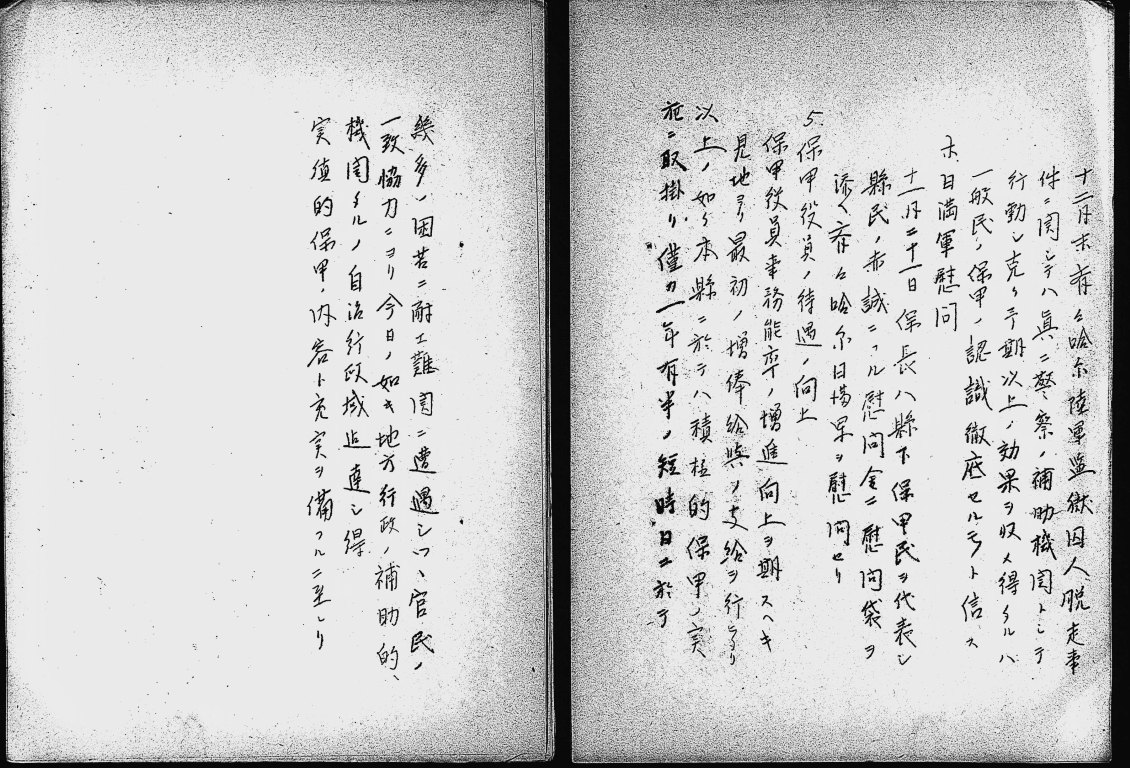 十二月末斉々哈尓陸軍監獄囚人脱走事
件ニ関シテハ真ニ警察ノ補助機関トシテ
行動シ克ク予期以上ノ効果ヲ収メ得タルハ
一般民ノ保甲ノ認識徹底セルモノト信ス
ホ日満軍慰問
十一月二十一日保長ハ縣下保甲民ヲ代表シ
縣民ノ赤誠ニナル慰問金ニ慰問袋ヲ
添ヘ斉々哈尓日満軍ヲ慰問セリ
5. 保甲役員ノ待遇ノ向上
保甲役員事務能率ノ増進向上ヲ期スヘキ
見地ヨリ最初ノ増俸給與ノ支給ヲ行ヘリ
以上ノ如ク本縣ニ於テハ積極的保甲ノ実
施ニ取掛リ僅カ一年有半ノ短時日ニ於テ
幾多ノ困苦ニ耐エ難関ニ遭遇シツヽ官民ノ
一致協力ニヨリ今日ノ如キ地方行政ノ補助的
機関タルノ自治行政域迄達シ得
実値的保甲ノ内容ト充実ヲ備フルニ至レリ